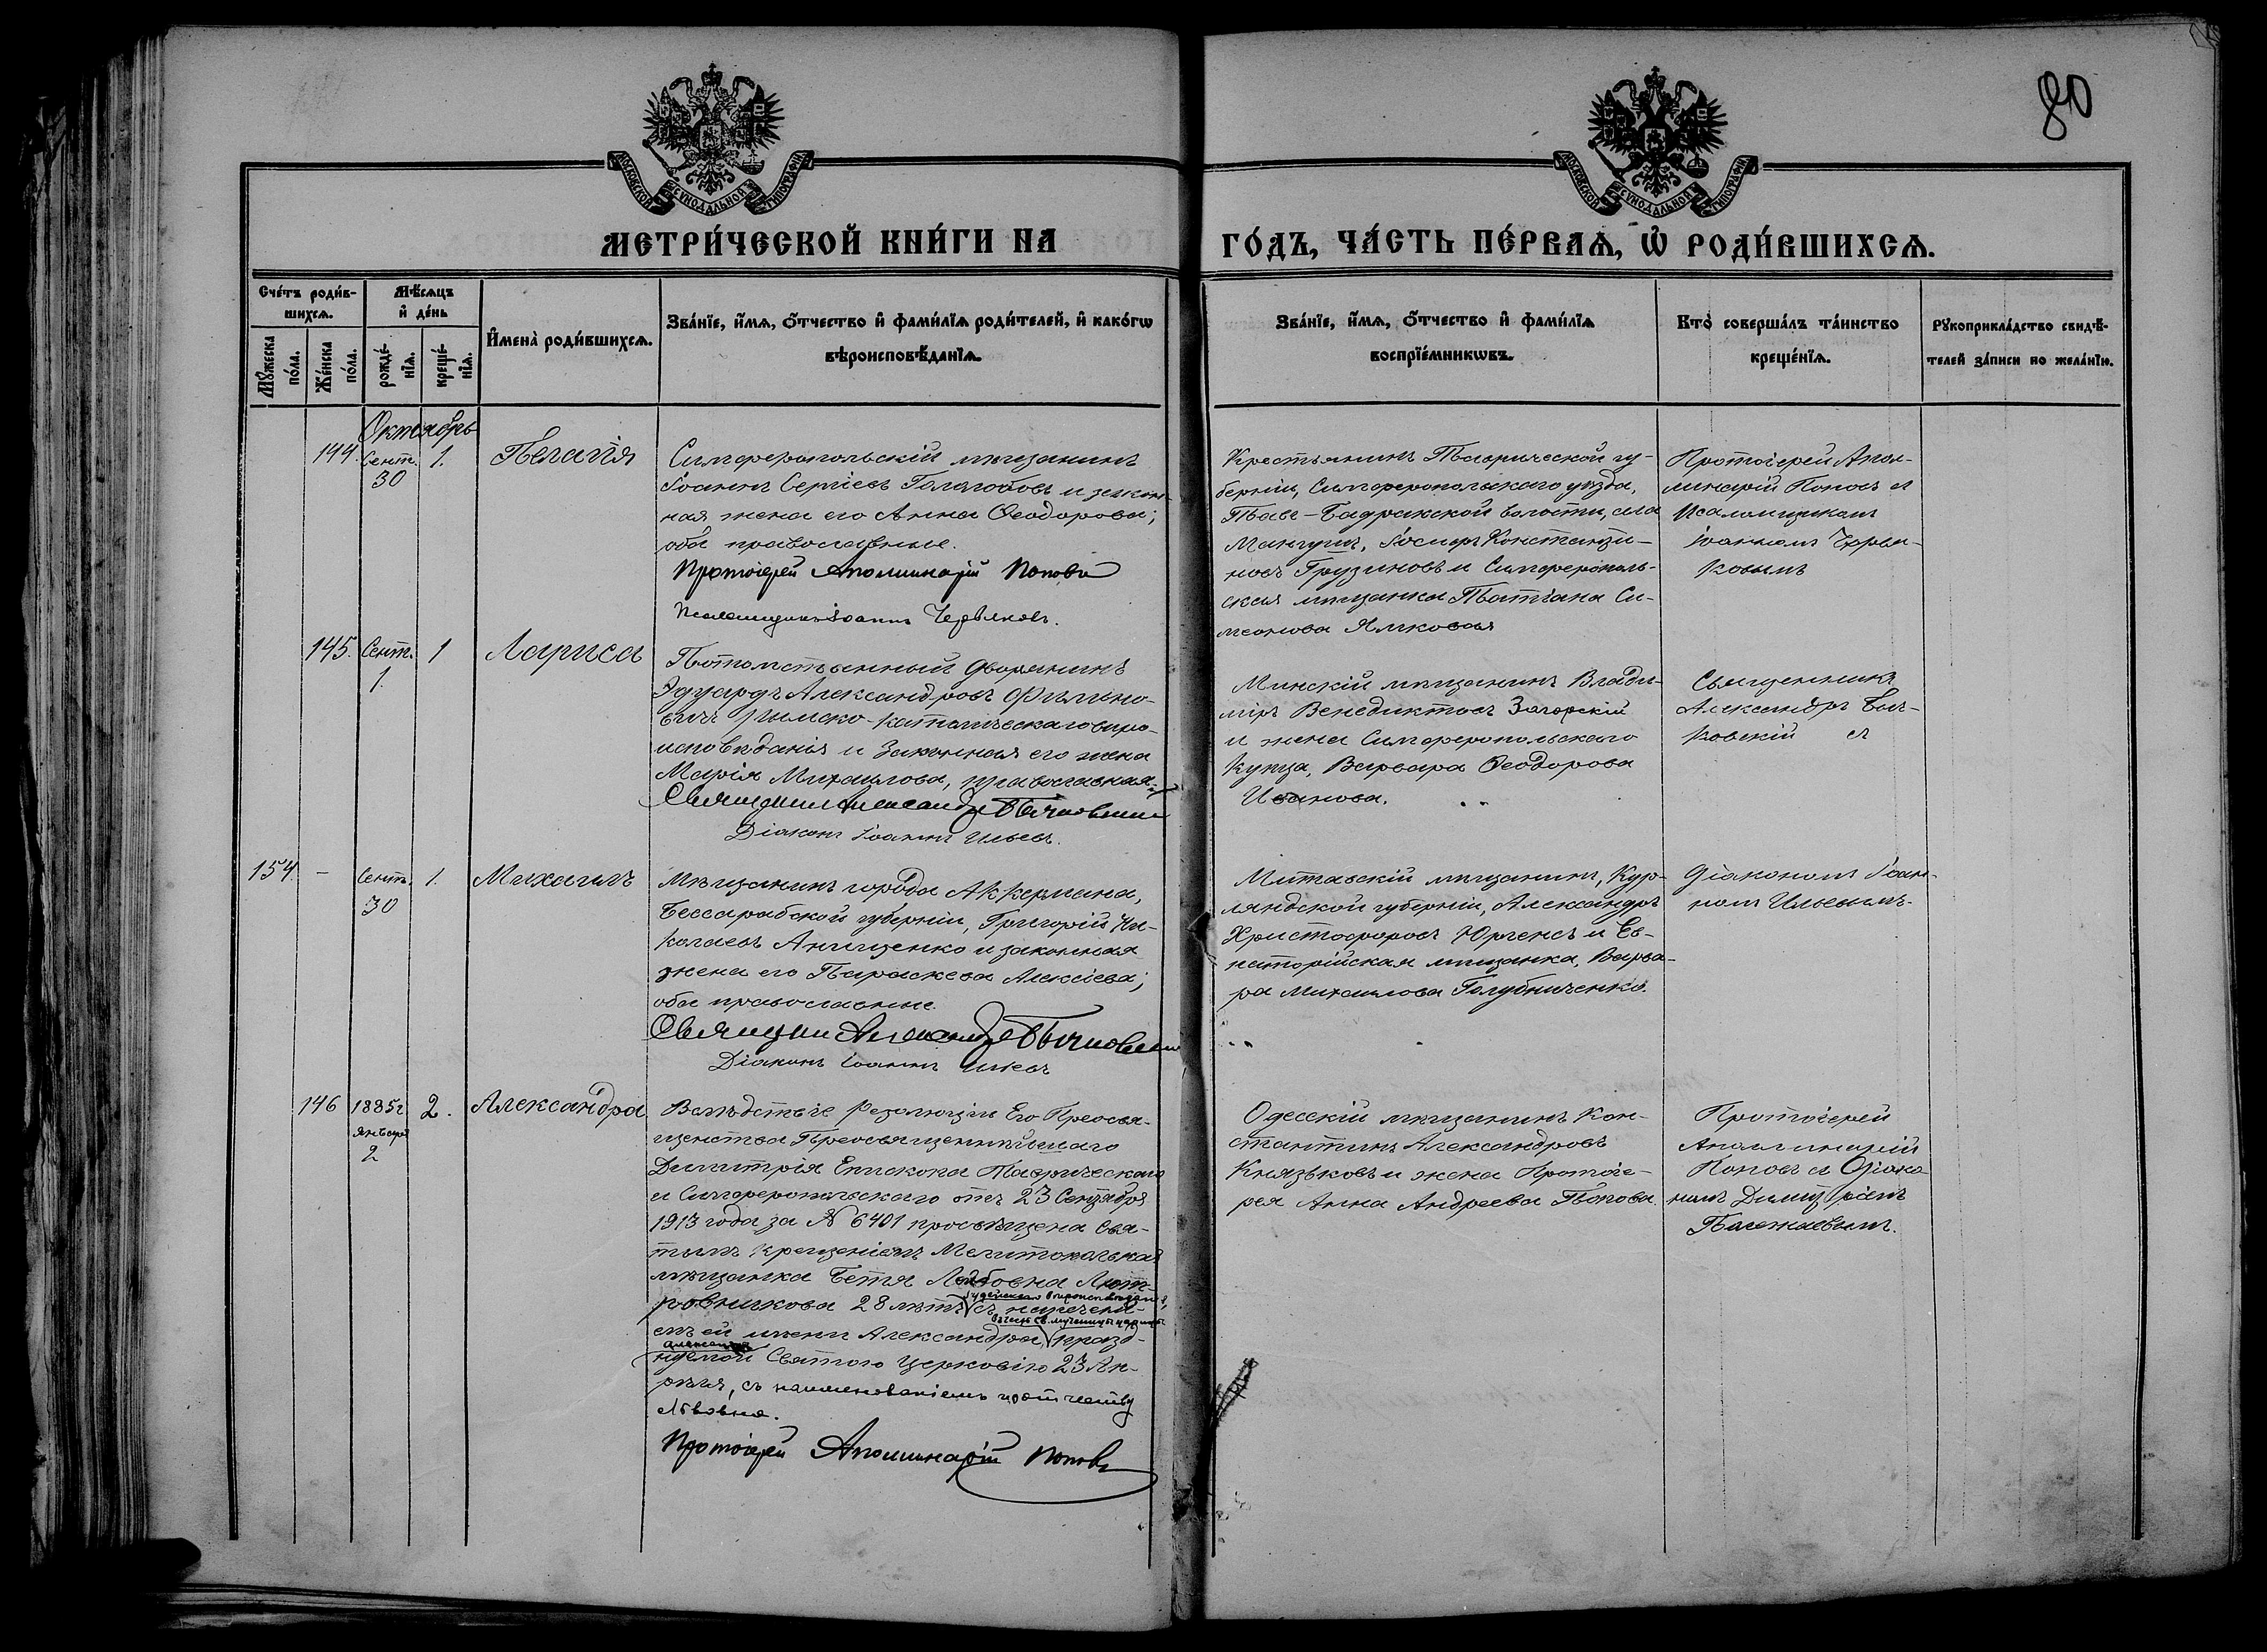 80
МОСКОВСКОЙ СѴНОДАЛЬНОЙ ТИПОГРАФІИ
МОСКОВСКОЙ СѴНОДАЛЬНОЙ ТИПОГРАФІИ
МЕТРИ́ЧЕСКОЙ КНИ́ГИ НА
ГО́ДЪ, ЧА́СТЬ ПЕ́РВАѦ, Ѡ҆ РОДИ́ВШИХСѦ.
Сче́тъ роди́в-
шихсѧ.
Мѣ́сѧцъ
и҆ де́нь
Мꙋ́жеска
по́ла.
Же́нска
по́ла.
рожде́-
нїѧ.
креще́-
нїѧ.
И҆мена̀ роди́вшихсѧ.
Зва́нїе, и҆́мѧ, ѻ҆́тчество и҆ фами́лїѧ роди́телей, и҆ како́гѡ
вѣроисповѣ́данїѧ.
Зва́нїе, и҆́мѧ, ѻ҆́тчество и҆ фами́лїѧ
воспрїе́мникѡвъ.
Кто̀ соверша́лъ та́инство
креще́нїѧ.
Рꙋкоприкла́дство свидѣ́-
телей за́писи по жела́нїю.
Октябрь
144. Сент. 30 1. Пелагія
Симферопольскій мѣщанинъ
Іоаннъ Сергіевъ и закон-
ная жена его Анна Ѳеодорова;
оба православные.
Протоіерей Аполлинарій Поповъ
Псаломщикъ Іоаннъ Червяковъ.
Крестьянинъ Таврической гу-
берніи, Симферопольскаго уѣзда,
Таве-Бадракской волости, села
Мангушъ, Іосифъ Константи-
новъ Грузиновъ и Симферополь-
ская мѣщанка Татіана Си-
меонова
Протоіерей Апол-
линарій Поповъ съ
Псаломщикомъ
Іоанномъ Червя-
ковымъ
145. Сент. 1. 1 Лариса
Потомственный дворянинъ
Эдуардъ Александровъ
Римско-католическаго вѣро-
исповѣданія и законная его жена
Марія Михаилова, православная.
Священникъ Александръ Бычковскій
Діаконъ Іоаннъ Ильевъ.
Минскій мѣщанинъ Влади-
міръ Венедиктовъ Загорскій
и жена Симферопольскаго
Купца, Варвара Ѳеодорова
Иванова.
Священникъ
Александръ Быч-
ковскій съ
154. - Сент. 30 1. Михаилъ
Мѣщанинъ города Аккермана,
Бессарабской губерніи, Григорій Ни-
колаевъ Анищенко и законная
жена его Параскева Алексіева;
оба православные.
Священникъ Александръ Бычковскій
Діаконъ Іоаннъ Ильевъ
Митавскій мѣщанинъ, Кур-
ляндской губерніи, Александръ
Христофоровъ Юргенсъ и Ев-
паторійская мѣщанка, Варва-
ра Михаилова Голубниченко.
Діакономъ Іоан-
номъ Ильевымъ.
146 1885 г. января 2 2. Александра
Вслѣдствіе резолюціи Его Преосвя-
щенства Преосвященнѣйшаго
Димитрія Епископа Таврическаго
и Симферопольскаго отъ 23 Сентября
1913 года за № 6401 просвѣщена Свя-
тымъ крещеніемъ Мелитопольская
мѣщанка Бетя
28 лѣтъ іудейскаго вѣроисповѣданія, съ нареченi-
емъ ей имени Александра, въ честь св. мученицы царицы Александры празд-
нуемой Святою Церковію 23 Ап-
рѣля, съ наименованіемъ по отчеству
Львовна.
Протоіерей Аполлинарій Поповъ
Одесскій мѣщанинъ Кон-
стантинъ Александровъ
Князьковъ и жена Протоіе-
рея Анна Андреева Попова.
Протоіерей
Аполлинарій
Поповъ съ Діако-
номъ Димитріемъ